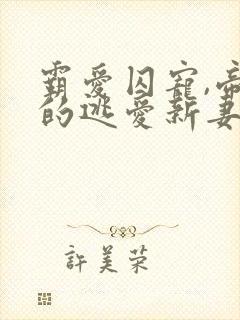 霸愛囚寵,帝
的逃愛新妻
許美荣